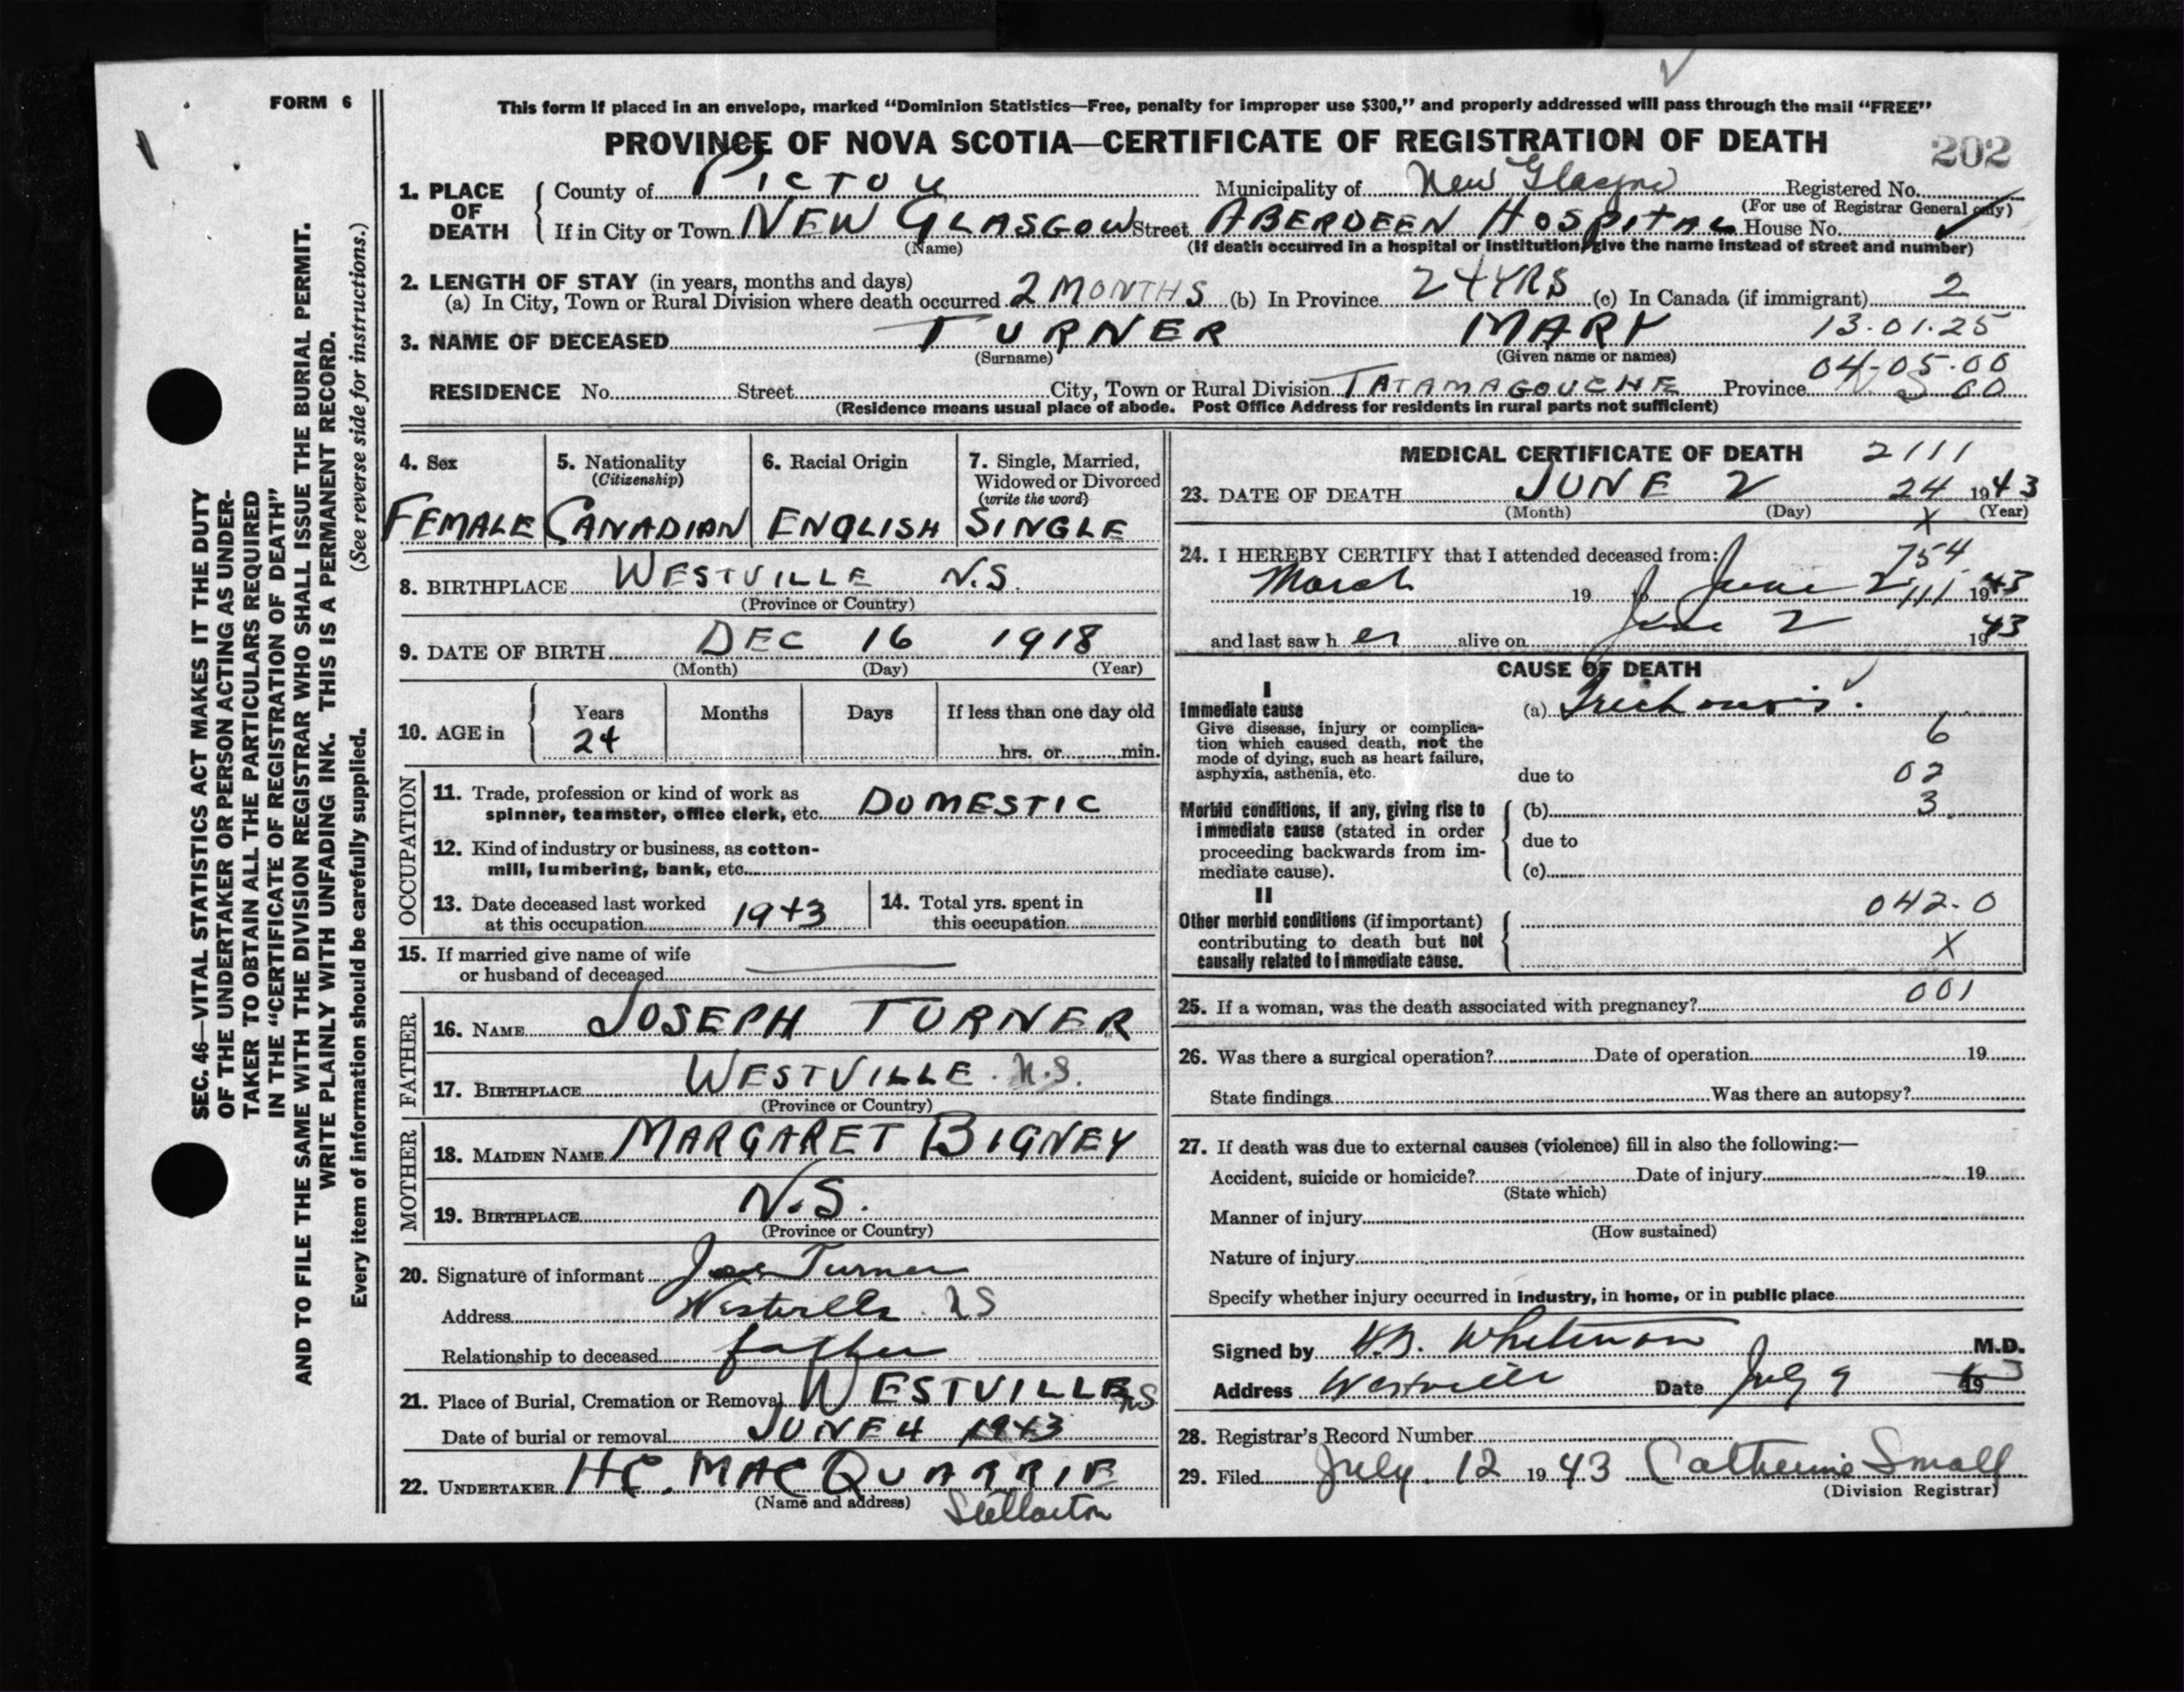 FORM 6
This form if placed in an envelope, marked “Dominion Statistics—Free, penalty for improper use $300,” and properly addressed will pass through the mail “FREE”
PROVINCE OF NOVA SCOTIA—CERTIFICATE OF REGISTRATION OF DEATH
202
1. PLACE OF DEATH
County of PICTOU Municipality of New Glasgow Registered No.
(For use of Registrar General only)
If in City or Town NEW GLASGOW Street ABERDEEN HOSPITAL House No.
(Name) (If death occurred in a hospital or institution, give the name instead of street and number)
2. LENGTH OF STAY (in years, months and days)
(a) In City, Town or Rural Division where death occurred 2 MONTHS (b) In Province 24 YRS (c) In Canada (if immigrant) 2
3. NAME OF DECEASED TURNER MARY 13.01.25
(Surname) (Given name or names)
04-05.00
RESIDENCE No. Street City, Town or Rural Division TATAMAGOUCHE Province N S 60
(Residence means usual place of abode. Post Office Address for residents in rural parts not sufficient)
4. Sex
FEMALE
5. Nationality
(Citizenship)
CANADIAN
6. Racial Origin
ENGLISH
7. Single, Married,
Widowed or Divorced
(write the word)
SINGLE
8. BIRTHPLACE WESTVILLE N.S.
(Province or Country)
9. DATE OF BIRTH DEC 16 1918
(Month) (Day) (Year)
10. AGE in
Years Months Days If less than one day old
24
hrs. or min.
OCCUPATION
11. Trade, profession or kind of work as
spinner, teamster, office clerk, etc. DOMESTIC
12. Kind of industry or business, as cotton-
mill, lumbering, bank, etc.
13. Date deceased last worked
at this occupation 1943
14. Total yrs. spent in
this occupation
15. If married give name of wife
or husband of deceased
FATHER
16. NAME JOSEPH TURNER
17. BIRTHPLACE WESTVILLE. N.S.
(Province or Country)
MOTHER
18. MAIDEN NAME MARGARET BIGNEY
19. BIRTHPLACE N.S.
(Province or Country)
20. Signature of informant Joe Turner
Address Westville NS
Relationship to deceased father
21. Place of Burial, Cremation or Removal WESTVILLE NS
Date of burial or removal JUNE 4 1943
22. UNDERTAKER H.C. MACQUARRIE
(Name and address) Stellarton
MEDICAL CERTIFICATE OF DEATH 2111
23. DATE OF DEATH JUNE 2 24 1943
(Month) (Day) (Year)
X
24. I HEREBY CERTIFY that I attended deceased from:
754
March 19 to June 2 111 1943
and last saw her alive on June 2 1943
CAUSE OF DEATH
I
Immediate cause
Give disease, injury or complica-
tion which caused death, not the
mode of dying, such as heart failure,
asphyxia, asthenia, etc.
(a)
6
due to 02
Morbid conditions, if any, giving rise to
immediate cause (stated in order
proceeding backwards from im-
mediate cause).
(b) 3
due to
(c)
II
Other morbid conditions (if important)
contributing to death but not
causally related to immediate cause.
042.0
X
25. If a woman, was the death associated with pregnancy? 001
26. Was there a surgical operation? Date of operation 19
State findings Was there an autopsy?
27. If death was due to external causes (violence) fill in also the following:—
Accident, suicide or homicide? Date of injury 19
(State which)
Manner of injury
(How sustained)
Nature of injury
Specify whether injury occurred in industry, in home, or in public place
Signed by Whitman M.D.
Address Westville Date July 9 19
28. Registrar's Record Number
29. Filed July 12 1943 Catherine Small
(Division Registrar)
SEC. 46—VITAL STATISTICS ACT MAKES IT THE DUTY
OF THE UNDERTAKER OR PERSON ACTING AS UNDER-
TAKER TO OBTAIN ALL THE PARTICULARS REQUIRED
IN THE “CERTIFICATE OF REGISTRATION OF DEATH”
AND TO FILE THE SAME WITH THE DIVISION REGISTRAR WHO SHALL ISSUE THE BURIAL PERMIT.
WRITE PLAINLY WITH UNFADING INK. THIS IS A PERMANENT RECORD.
Every item of information should be carefully supplied. (See reverse side for instructions.)